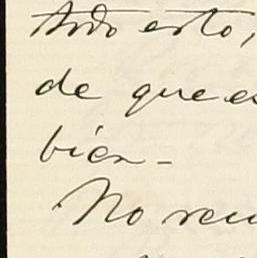 todo esto,
de que es
bien -
No